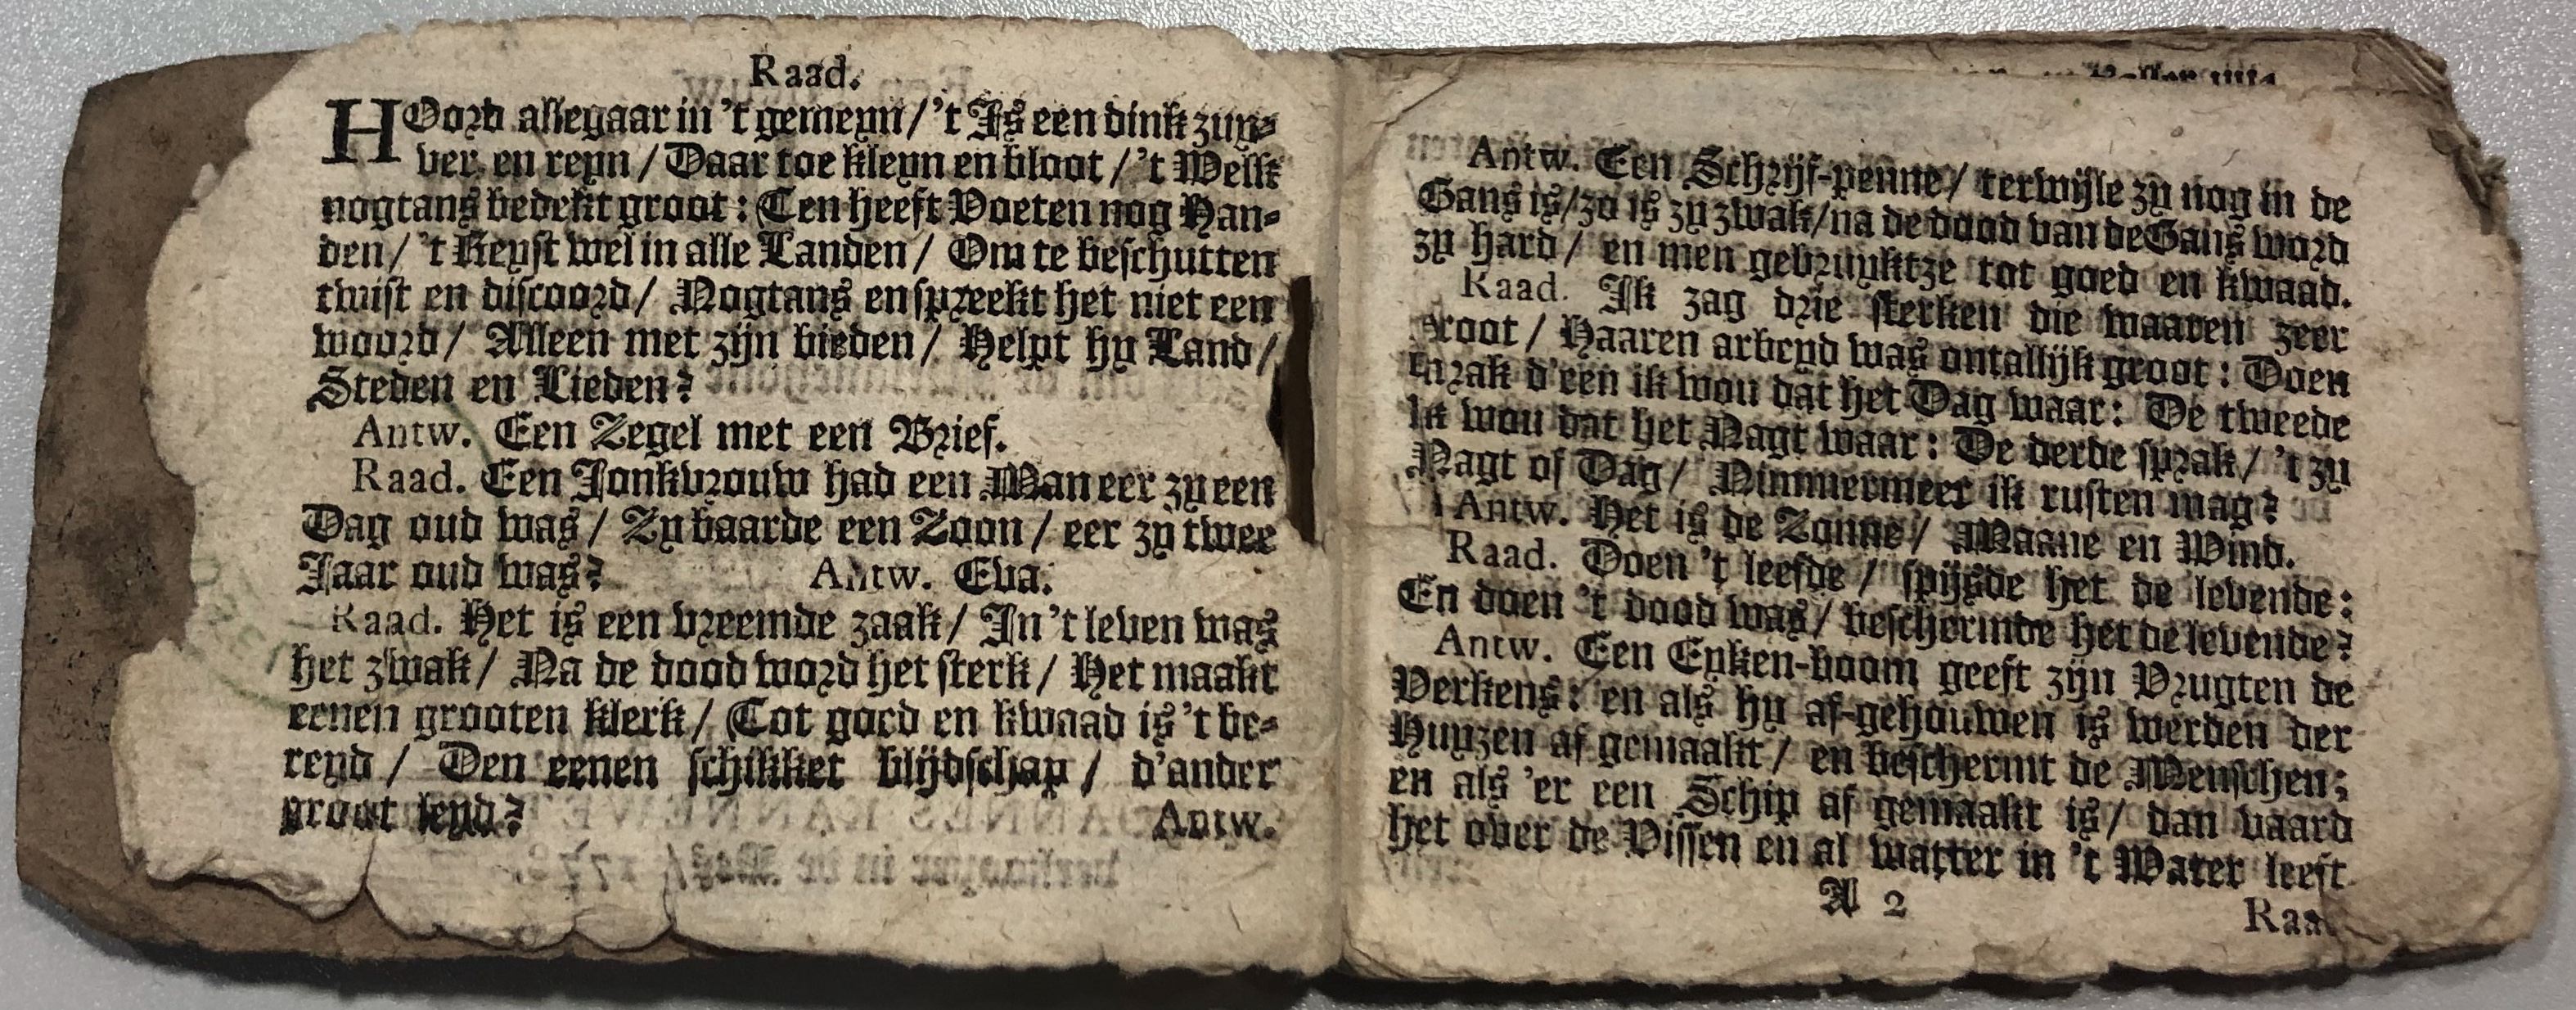 Raad.
HOord allegaar in 't gemeyn/ 't Is een dink zuy-
ver en reyn / Daar toe kleyn en bloot / 't Welk
nogtans bedekt groot: Ten heeft Voeten nog Han-
den/ 't Reyst wel in alle Landen/ Om te beschutten
twist en discoord/ Nogtans en spreekt het niet een
woord/ Alleen met zijn bieden/ Helpt hy Land/
Steden en Lieden?
Antw. Een Zegel met een Brief.
Raad. Een Jonkvrouw had een Man eer zy een
Dag oud was/ Zy baarde een Zoon/ eer zy twee
Jaar oud was? Antw. Eva.
Raad. Het is een vreemde zaak/ In 't leven was
het zwak/ Na de dood word het sterk/ Het maakt
eenen grooten klerk/ Tot goed en kwaad is 't be-
reyd/ Den eenen schikket blijdschap/ d'ander
groot leyd?
Antw.
Antw. Een Schrijf-penne/ terwijle zy nog in de
Gans is/zo is zy zwak/na de dood van de Gans word
zy hard/ en men gebruyktze tot goed en kwaad.
Raad. Ik zag drie sterken die waaren zeer
groot/ Haaren arbeyd was ontallijk groot: Doen
sprak d'een ik wou dat het Dag waar: De tweede
Ik wou dat het Nagt waar: De derde sprak/ 't zy
Nagt of Dag/ Nimmermeer ik rusten mag?
Antw. Het is de Zonne/ Maane en Wind.
Raad. Doen 't leefde/ spijsde het de levende:
En doen 't dood was/ beschermde het de levende?
Antw. Een Eyken-boom geeft zijn Vrugten de
Verkens: en als hy af-gehouwen is werden der
Huyzen af gemaakt/ en beschermt de Menschen;
en als 'er een Schip af gemaakt is/ dan vaard
het over de Vissen en al watter in 't Water leeft
A 2
Raa